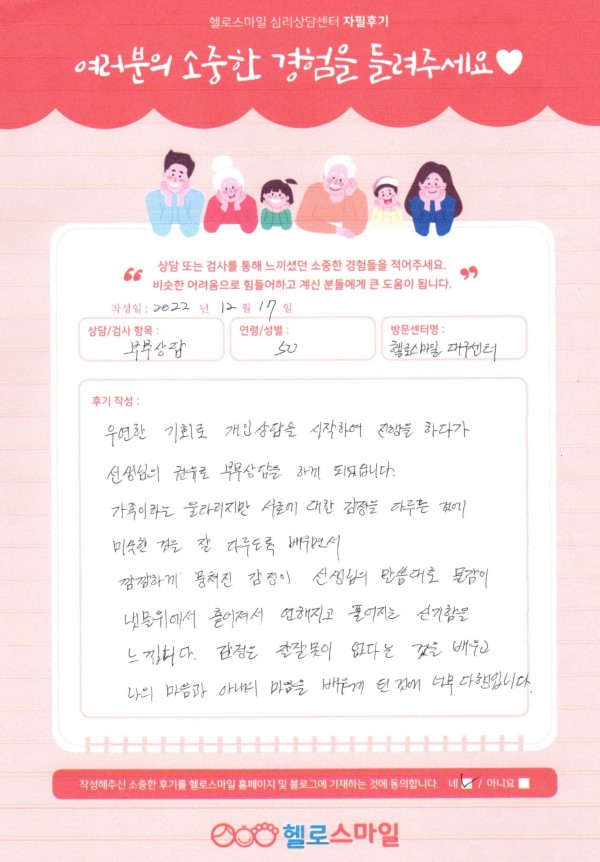 헬로스마일 심리상담센터 자필후기
여러분의 소중한 경험을 들려주세요♥
“ 상담 또는 검사를 통해 느끼셨던 소중한 경험들을 적어주세요.
비슷한 어려움으로 힘들어하고 계신 분들에게 큰 도움이 됩니다. ”
작성일 : 2022 년 12 월 17 일
상담/검사 항목 : 부부상담
연령/성별 : 50
방문센터명 : 헬로스마일 대구센터
후기 작성 :
우연한 기회로 개인상담을 시작하여 진행을 하다가
선생님의 권유로 부부상담을 하게 되었습니다.
가족이라는 울타리지만 서로에 대한 감정을 다루는 것에
미숙한 것을 잘 다루도록 배우면서
깜깜하게 뭉쳐진 감정이 선생님의 말씀대로 물감이
냇물위에서 흩어져서 연해지고 풀어지는 신기함을
느낍니다. 감정은 잘잘못이 없다는 것을 배우고
나의 마음과 아내의 마음을 배우게 된 것에 너무 다행입니다.
작성해주신 소중한 후기를 헬로스마일 홈페이지 및 블로그에 기재하는 것에 동의합니다. 네 / 아니요
헬로스마일